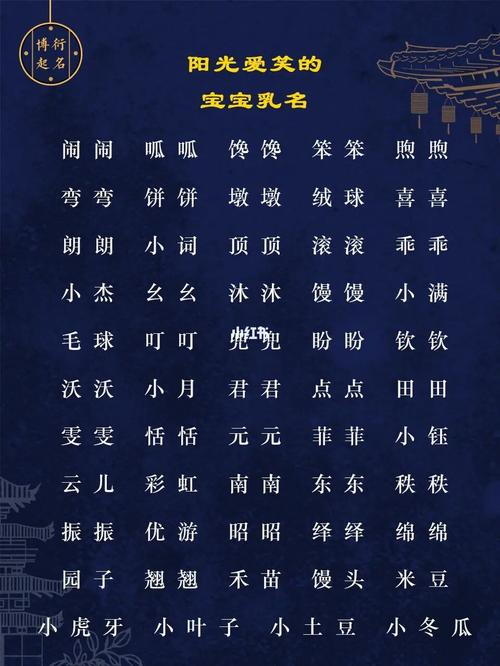 博衍
起名
阳光爱笑的
宝宝乳名
闹闹 呱呱 馋馋 笨笨 煦煦
弯弯 饼饼 墩墩 绒球 喜喜
朗朗 小词 顶顶 滚滚 乖乖
小杰 幺幺 沐沐 馒馒 小满
毛球 叮叮 兜兜 盼盼 钦钦
小红书
沃沃 小月 君君 点点 田田
雯雯 恬恬 元元 菲菲 小钰
云儿 彩虹 南南 东东 秩秩
振振 优游 昭昭 绎绎 绵绵
园子 翘翘 禾苗 馒头 米豆
小虎牙 小叶子 小土豆 小冬瓜